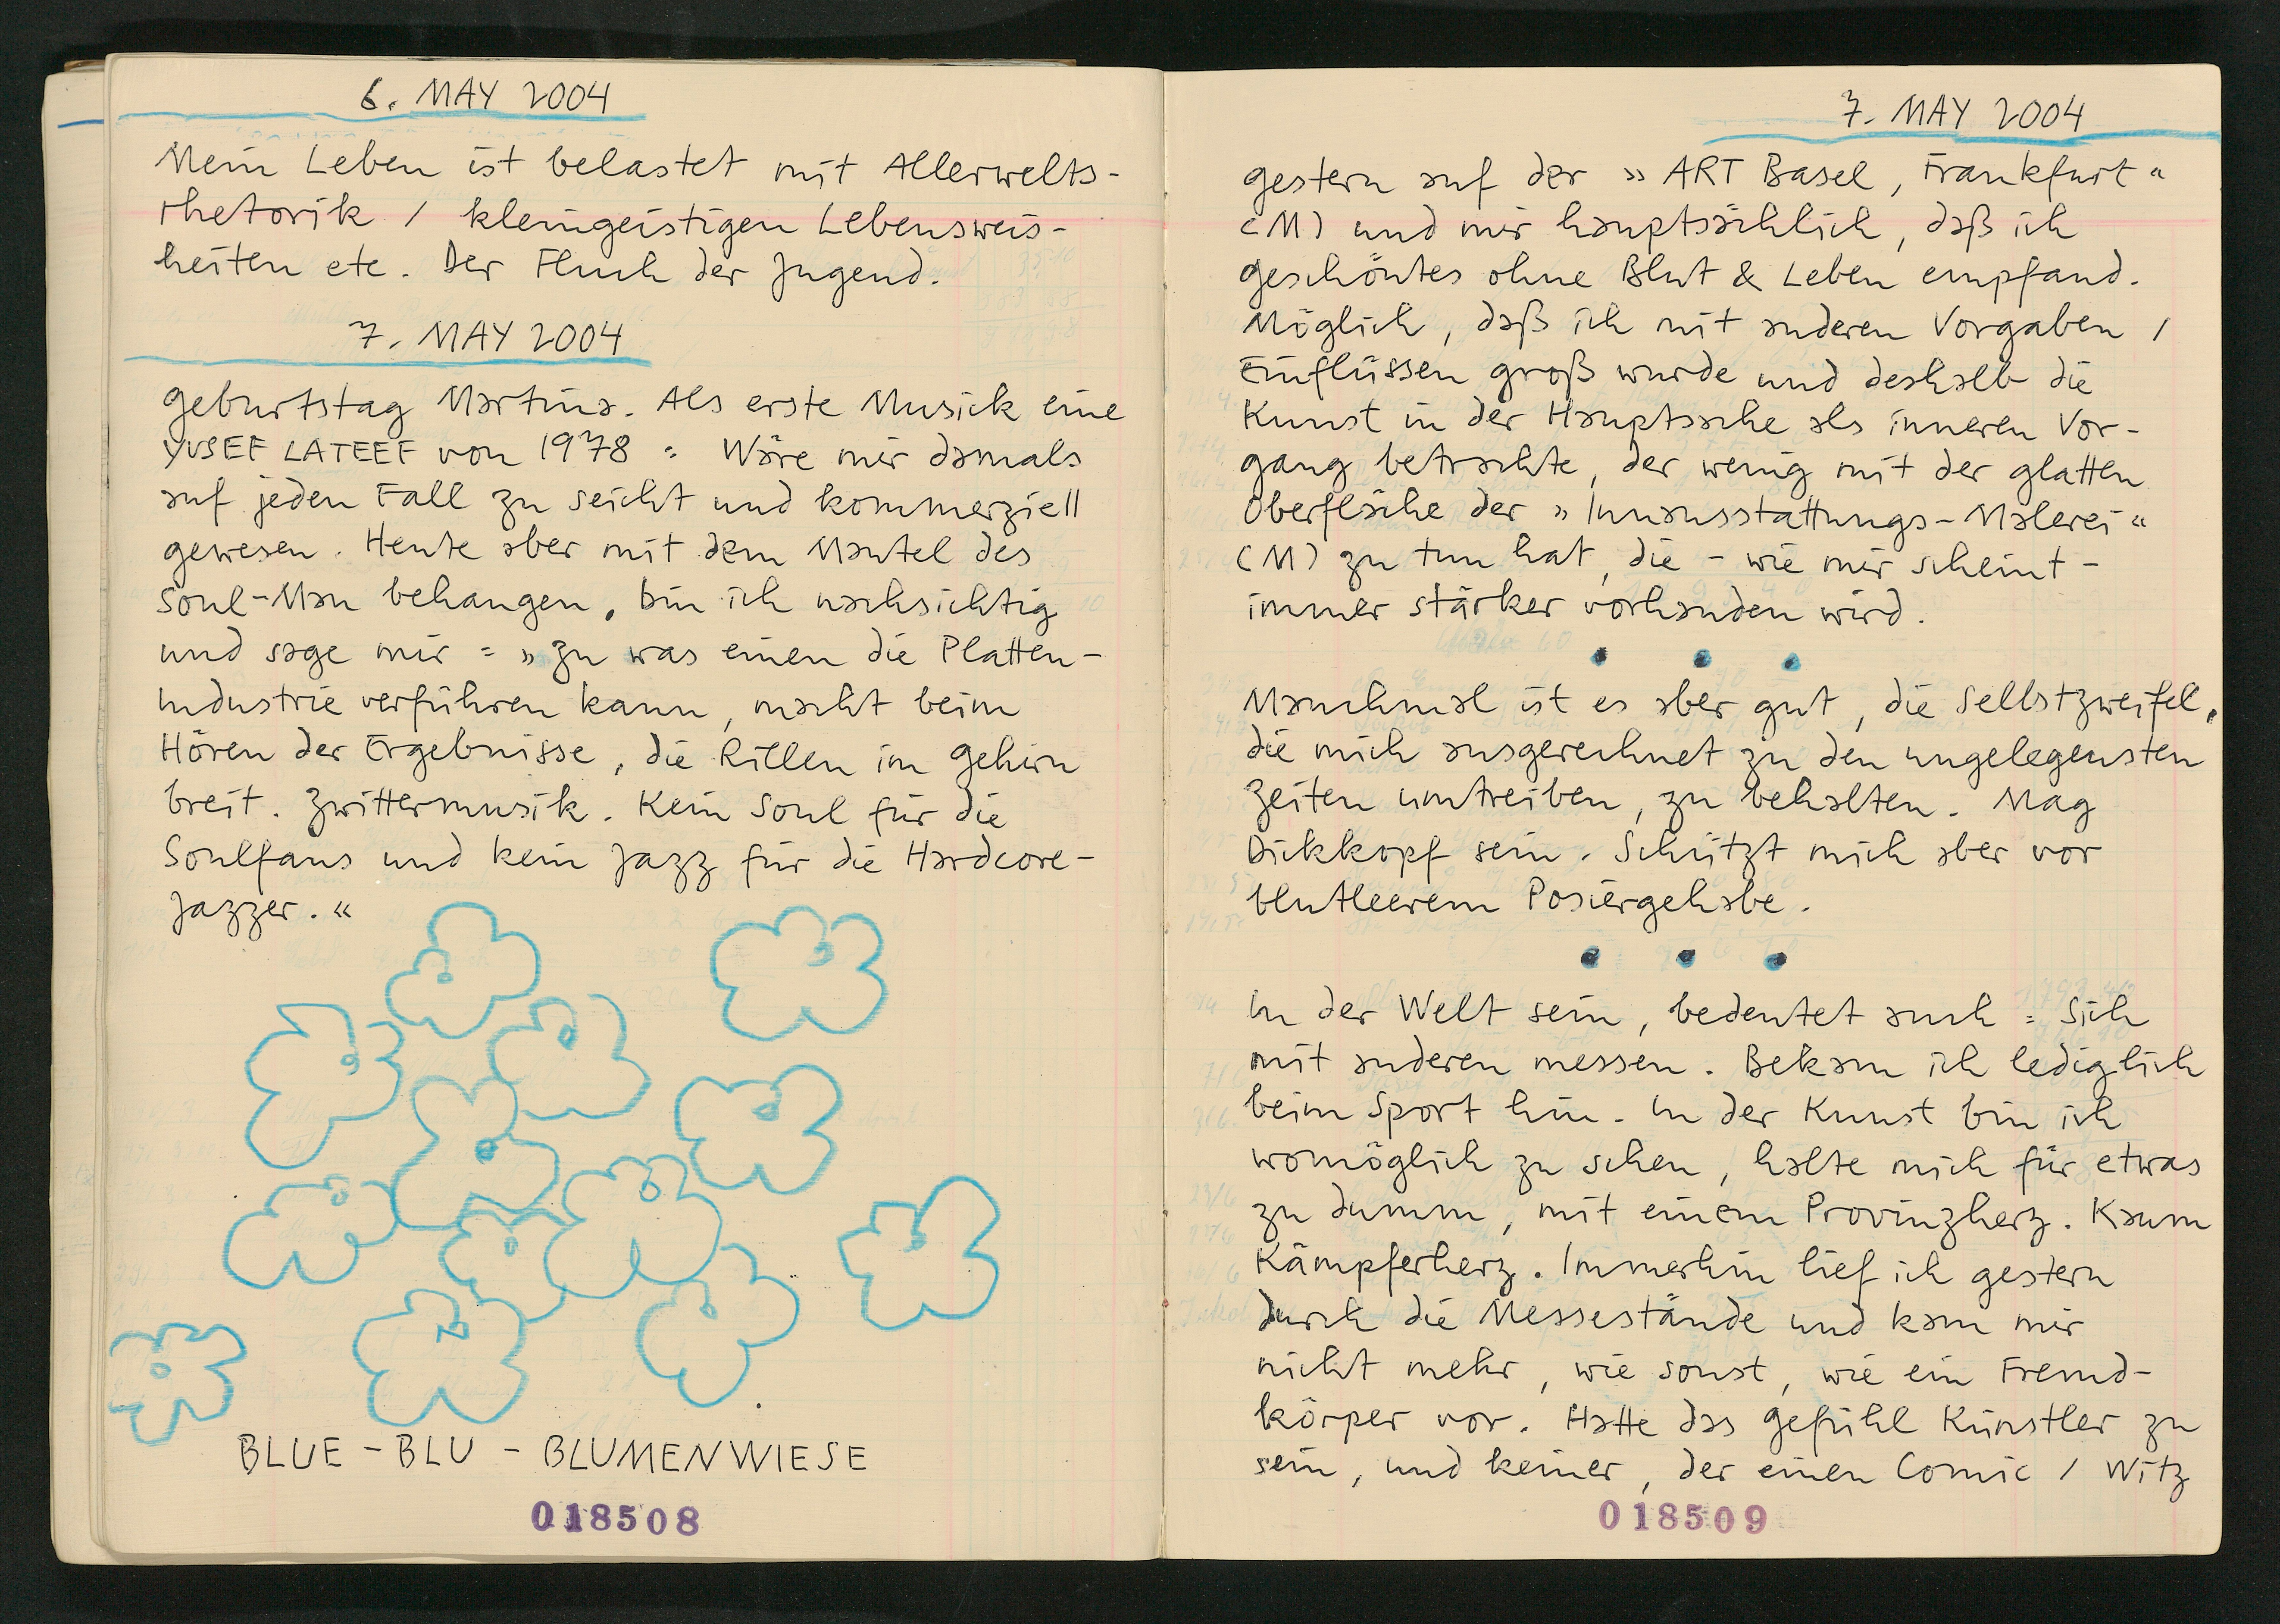 6. MAY 2004
Mein Leben ist belastet mit Allerwelts-
rhetorik / kleingeistigen Lebensweis-
heiten etc. Der Fluch der Jugend.
7. MAY 2004
Geburtstag Martina. Als erste Musick eine
YUSEF LATEEF von 1978 : Wäre mir damals
auf jeden Fall zu seicht und kommerziell
gewesen. Heute aber mit dem Mantel des
Soul-Man behangen, bin ich nachsichtig
und sage mir : » Zu was einen die Platten-
industrie verführen kann, macht beim
Hören der Ergebnisse, die Rillen im Gehirn
breit. Zwittermusik. Kein Soul für die
Soulfans und kein Jazz für die Hardcore-
Jazzer. «
BLUE - BLU - BLUMENWIESE
018508
7. MAY 2004
Gestern auf der » ART Basel, Frankfurt «
(M) und mir hauptsächlich, daß ich
Geschöntes ohne Blut & Leben empfand.
Möglich, daß ich mit anderen Vorgaben /
Einflüssen groß wurde und deshalb die
Kunst in der Hauptsache als inneren Vor-
gang betrachte, der wenig mit der glatten
Oberfläche der » Innausstattungs-Malerei «
(M) zu tun hat, die - wie mir scheint -
immer stärker vorhanden wird.
Manchmal ist es aber gut, die Selbstzweifel,
die mich ausgerechnet zu den ungelegensten
Zeiten umtreiben, zu behalten. Mag
Dickkopf sein. Schützt mich aber vor
blutleerem Posiergehabe.
In der Welt sein, bedeutet auch : Sich
mit anderen messen. Bekam ich lediglich
beim Sport hin. In der Kunst bin ich
womöglich zu scheu, halte mich für etwas
zu dumm, mit einem Provinzherz. Kaum
Kämpferherz. Immerhin lief ich gestern
durch die Messestände und kam mir
nicht mehr, wie sonst, wie ein Fremd-
körper vor. Hatte das Gefühl Künstler zu
sein, und keiner, der einen Comic / Witz
018509